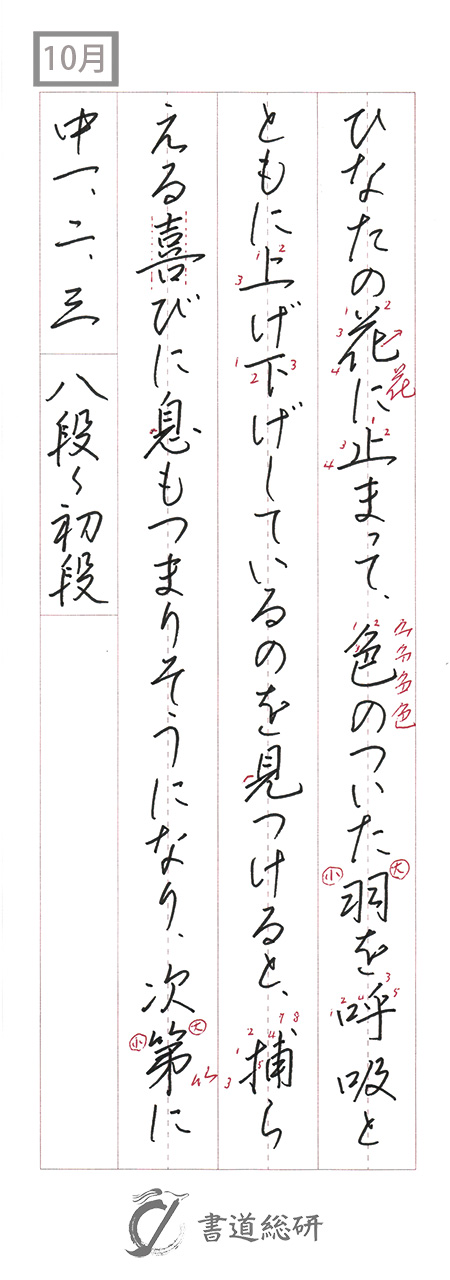 10月
ひなたの花に止まって、色のついた羽を呼吸と
ともに上げ下げしているのを見つけると、捕ら
える喜びに息もつまりそうになり、次第に
中一、二、三 八段〜初段
書道総研